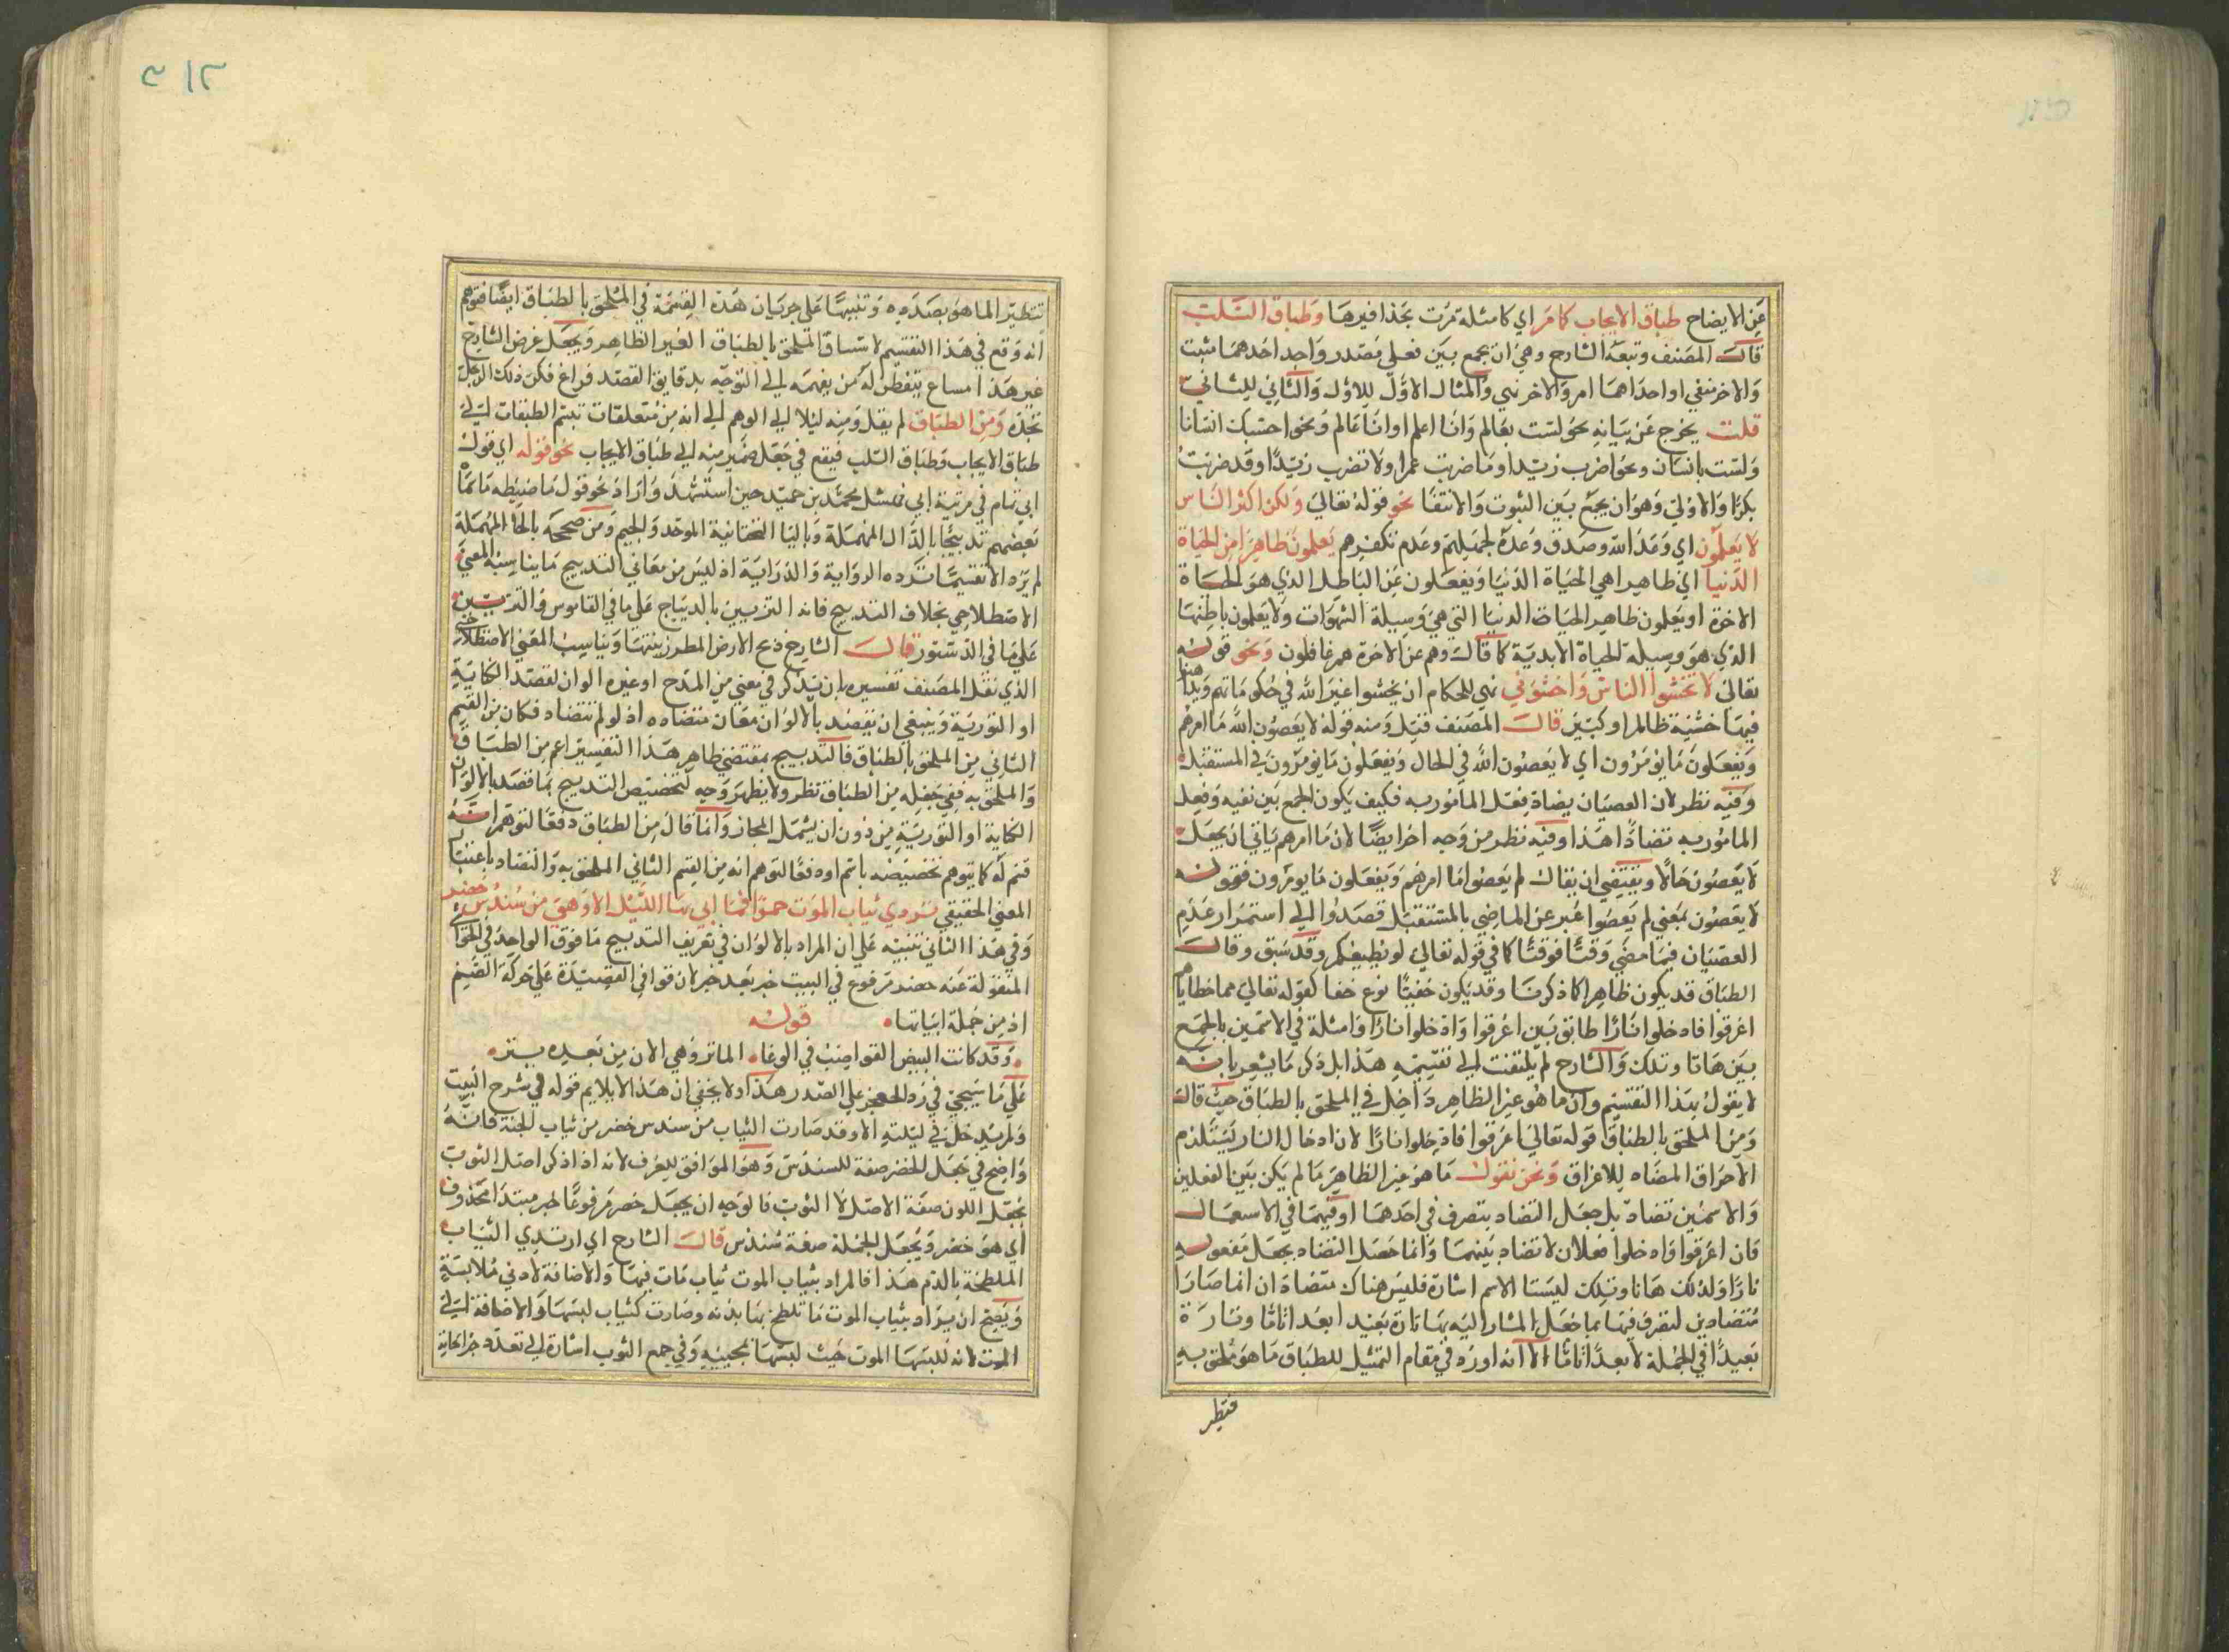 عن الايضاح طباق الايجاب كما مر اي كامثلة مرت بحذافيرها وطباق السلب
قال المصنف وتبعه الشارح وهي ان يجمع بين فعلي مصدر واحد احدهما مثبت
والاخر منفي او احداهما امر والاخر نهي والمثال الاول للاول والثاني للثاني
قلت يخرج عن بيانه نحو لست بعالم وانا اعلم او انا عالم ونحو احسبك انسانا
ولست بانسان ونحو اضرب زيدا وما ضربت عمرا ولا تضرب زيدا وقد ضربت
بكرا والاولى وهو ان يجمع بين الثبوت والانتفا نحو قوله تعالى ولكن اكثر الناس
لا يعلمون اي وعد الله وصدق وعده لجهلهم وعدم تفكرهم يعلمون ظاهرا من الحياة
الدنيا اي ظاهرا هي الحياة الدنيا ويغفلون عن الباطن الذي هو الحياة
الاخرة او يعلمون ظاهر الحياة الدنيا التي هي وسيلة الشهوات ولا يعلمون باطنها
الذي هو وسيلة الحياة الابدية كما قال وهم عن الاخرة هم غافلون ونحو قوله
تعالى لا تخشوا الناس واخشوني نهي للحكام ان يخشوا غير الله في حكوماتهم
فيها خشية ظالم او كبير قال المصنف قيل ومنه قوله لا يعصون الله ما امرهم
ويفعلون ما يؤمرون اي لا يعصون الله في الحال ويفعلون ما يؤمرون في المستقبل
وفيه نظر لان العصيان يضاد فعل المأمور به فكيف يكون الجمع بين نفيه وفعل
المامور به تضادا هذا وفيه نظر من وجه اخر ايضا لان ما امرهم يابي ان يجعل
لا يعصون حالا ويقتضي ان يقال لم يعصوا ما امرهم ويفعلون ما يومرون فقوله
لا يعصون بمعني لم يعصوا عبر عن الماضي بالمستقبل قصدا الي استمرار عدم
العصيان فيما مضي وقتا فوقتا كما في قوله تعالى لو يطيعكم وقد سبق وقال
الطباق قد يكون ظاهرا كما ذكرنا وقد يكون خفيا نوع خفا كقوله تعالى مما خطاياهم
اغرقوا فادخلوا نارا طابق بين اغرقوا وادخلوا نارا وامثلة في الاسمين بالجمع
بين هاتا وتلك والشارح لم يلتفت الي تقسيمه هذا بل ذكر ما يشعر بانه
لا يقول بهذا التقسيم وان ما هو غير الظاهر داخل في الملحق بالطباق حيث قال
ومن الملحق بالطباق قوله تعالى اغرقوا فادخلوا نارا لان ادخال النار يستلزم
الاحراق المضاد للاغراق ونحن نقول ما هو غير الظاهر ما لم يكن بين الفعلين
والاسمين تضاد بل جعل التضاد بتصرف في احدهما او فيهما في الاستعمال
فان اغرقوا وادخلوا فعلان لا تضاد بينهما وانما حصل التضاد بجعل مفعوله
نارا ولذلك هاتا وتلك ليستا الاسم اشارة فليس هناك متضادان انما صارا
متضادين لتصرف فيهما بما جعل المشار اليه بها تارة بعيدا بعدا تاما وتارة
بعيدا في الجملة لا بعدا تاما الا انه اورده في مقام التمثيل للطباق ما هو ملحق به
فتطير
تنظيرا لما هو بصدده وتنبيها على جريان هذه القسمة في الملحق بالطباق ايضا فتوهم
انه وقع في هذا التقسيم لاستساق الملحق بالطباق الغير الظاهر ويجعل غرض الشارح
غير هذا مساع يتفطن له من يفهمه الي التوجه بدقايق القصد فراغ فكن ذلك الرجل
تجده ومن الطباق لم يقل ومنه ليلا الي الوهم الي انه من متعلقات
طباق الايجاب وطباق السلب فيقع في جعل ضمير منه الي طباق الايجاب نحو قوله اي قول
ابي تمام في مرثية ابي نهشل محمد بن حميد حين استشهد واراد نحو قول
بعضهم تدبيجا بالدال المهملة وباليا التحتانية الموحد والجيم ومن صححه بالحا المهملة
لم يزد الا تقسيما ترده الرواية والدراية اذ ليس من معاني التدبيح ما يناسبه المعني
الاصطلاحي بخلاف التدبيج فانه التزيين بالديباج علي ما في القاموس والتزيين
علي ما في الدستور قال الشارح دبج الارض المطر زينتها ويناسب المعني الاصطلاحي
الذي نقل المصنف تفسيره بان يذكر في معني من المدح او غيره الوان لقصد الكناية
او التورية وينبغي ان يقصد بالالوان معان متضاده اذ لو لم تتضاد فكان من القسم
الثاني من الملحق بالطباق فالتدبيج بمقتضي ظاهر هذا التفسير اعم من الطباق
والملحق به ففي جعله من الطباق نظر ولا يظهر وجه لتخصيص التدبيج بما قصد بالالوان
الكناية او التورية من دون ان يشمل المجاز وانما قال من الطباق دفعا لتوهم انه
قسم له كما يتوهم تخصيصه باسم او دفعا لتوهم انه من القسم الثاني الملحق به والتضاد باعتبار
المعني الحقيقي تردي ثياب الموت حمرا فما اتي لها الليل الا وهي من سندس خضر
وفي هذا الثاني تنبيه علي ان المراد بالالوان في تعريف التدبيج ما فوق الواحد في الحواشي
المنقولة عنه خضر مرفوع في البيت خبر بعد خبر لان قوافي القصيدة علي حركة الضم
اذ من جملة ابياتها قوله
وقد كانت البيض القواضب في الوغا المائر وهي الان من بعده بتر
علي ما سيجيئ في رد العجز علي الصدر هذا ولا يخفي ان هذا لا يلايم قوله في شرح البيت
ولم يدخل في ليلته الا وقد صارت الثياب من سندس خضر من ثياب الجنة فانه
واضح في جعل الخضر صفة للسندس وهو الموافق للعرف لانه اذا ذكر اصل الثوب
يجعل اللون صفة الاصل لا الثوب فالوجه ان يجعل خضر مرفوعا لخبر مبتدا محذوف
اي هو خضر ويجعل الجملة صفة سندس قال الشارح اي ارتدي الثياب
الملطخة بالدم هذا فالمراد بثياب الموت ثياب مات فيها والاضافة لادني ملابسة
ويصح ان يراد بثياب الموت ما تلطخ بها بدنه وصارت كثياب لبسها والاضافة الي
الموت لانه لبسها الموت حيث لبسها بمجيئه وفي جمع الثوب اشارة الي تعدد جراحاته